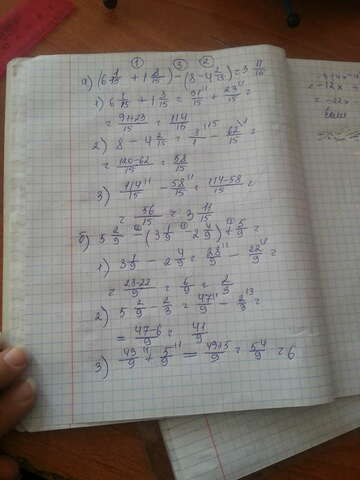 ① ③ ②
а) (6 1/15 + 1 8/15) - (8 - 4 2/15) = 3 11/15
1) 6 1/15 + 1 8/15 = 91/15 + 23/15 =
= 91+23/15 = 114/15
2) 8 - 4 2/15 = 8/1 - 62/15 =
= 120-62/15 = 58/15
3) 114/15 - 58/15 = 114-58/15 =
= 56/15 = 3 11/15
б) 5 2/9 - (3 1/9 - 2 4/9) + 5/9 =
1) 3 1/9 - 2 4/9 = 28/9 - 22/9 =
= 28-22/9 = 6/9 = 2/3
2) 5 2/9 - 2/3 = 47/9 - 2/3 =
= 47-6/9 = 41/9
3) 49/9 + 5/9 = 49+5/9 = 54/9 = 6